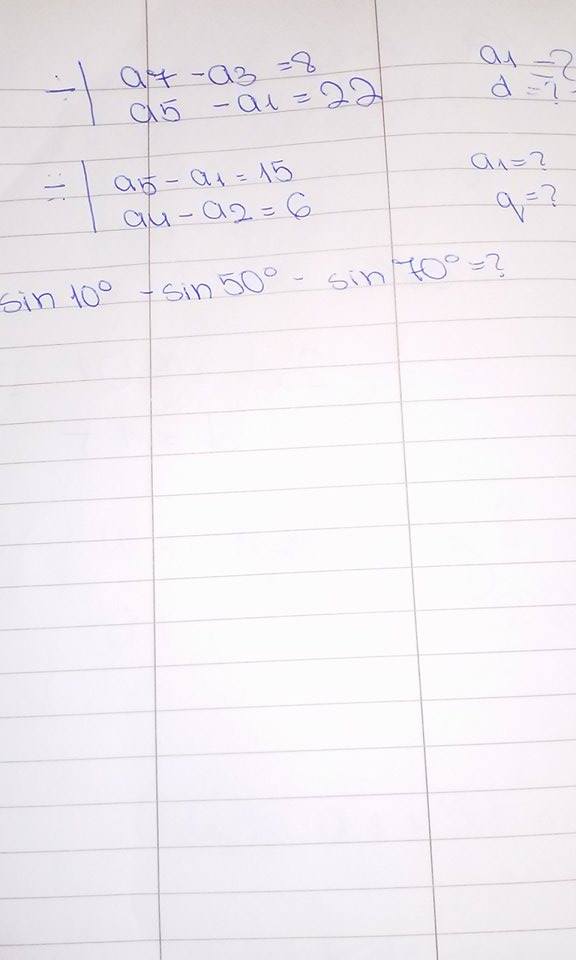 ÷| a7 - a3 = 8 a1 = ?
a5 - a1 = 22 d = ?
÷÷| a5 - a1 = 15 a1 = ?
a4 - a2 = 6 q = ?
sin 10° - sin 50° - sin 70° = ?